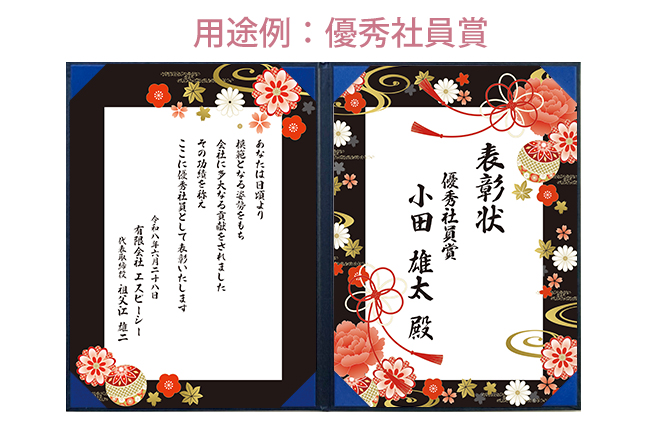 用途例：優秀社員賞
表彰状
優秀社員賞
小田 雄太 殿
あなたは日頃より
模範となる姿勢をもち
会社に多大なる貢献をされました
その功績を称え
ここに優秀社員として表彰いたします
令和八年六月二十八日
有限会社 エスピーシー
代表取締役 祖父江 雄二